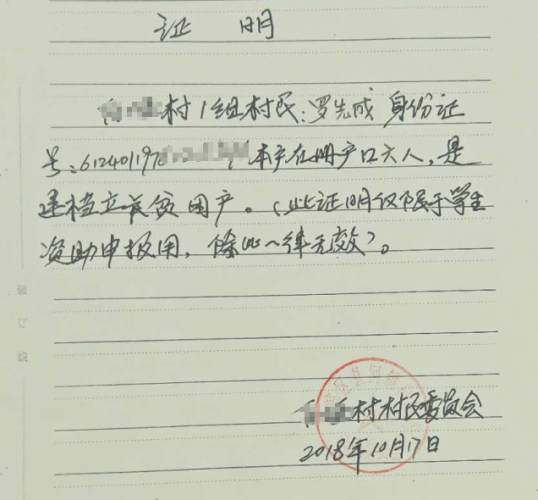 证 明
村1组村民:罗先成 身份证
号:61240119 本户在册户口六人,是
建档立 贫困户。(此证明仅限于学生
资助申报用,除此一律无效)。
村村民委员会
2018年10月17日
装订线